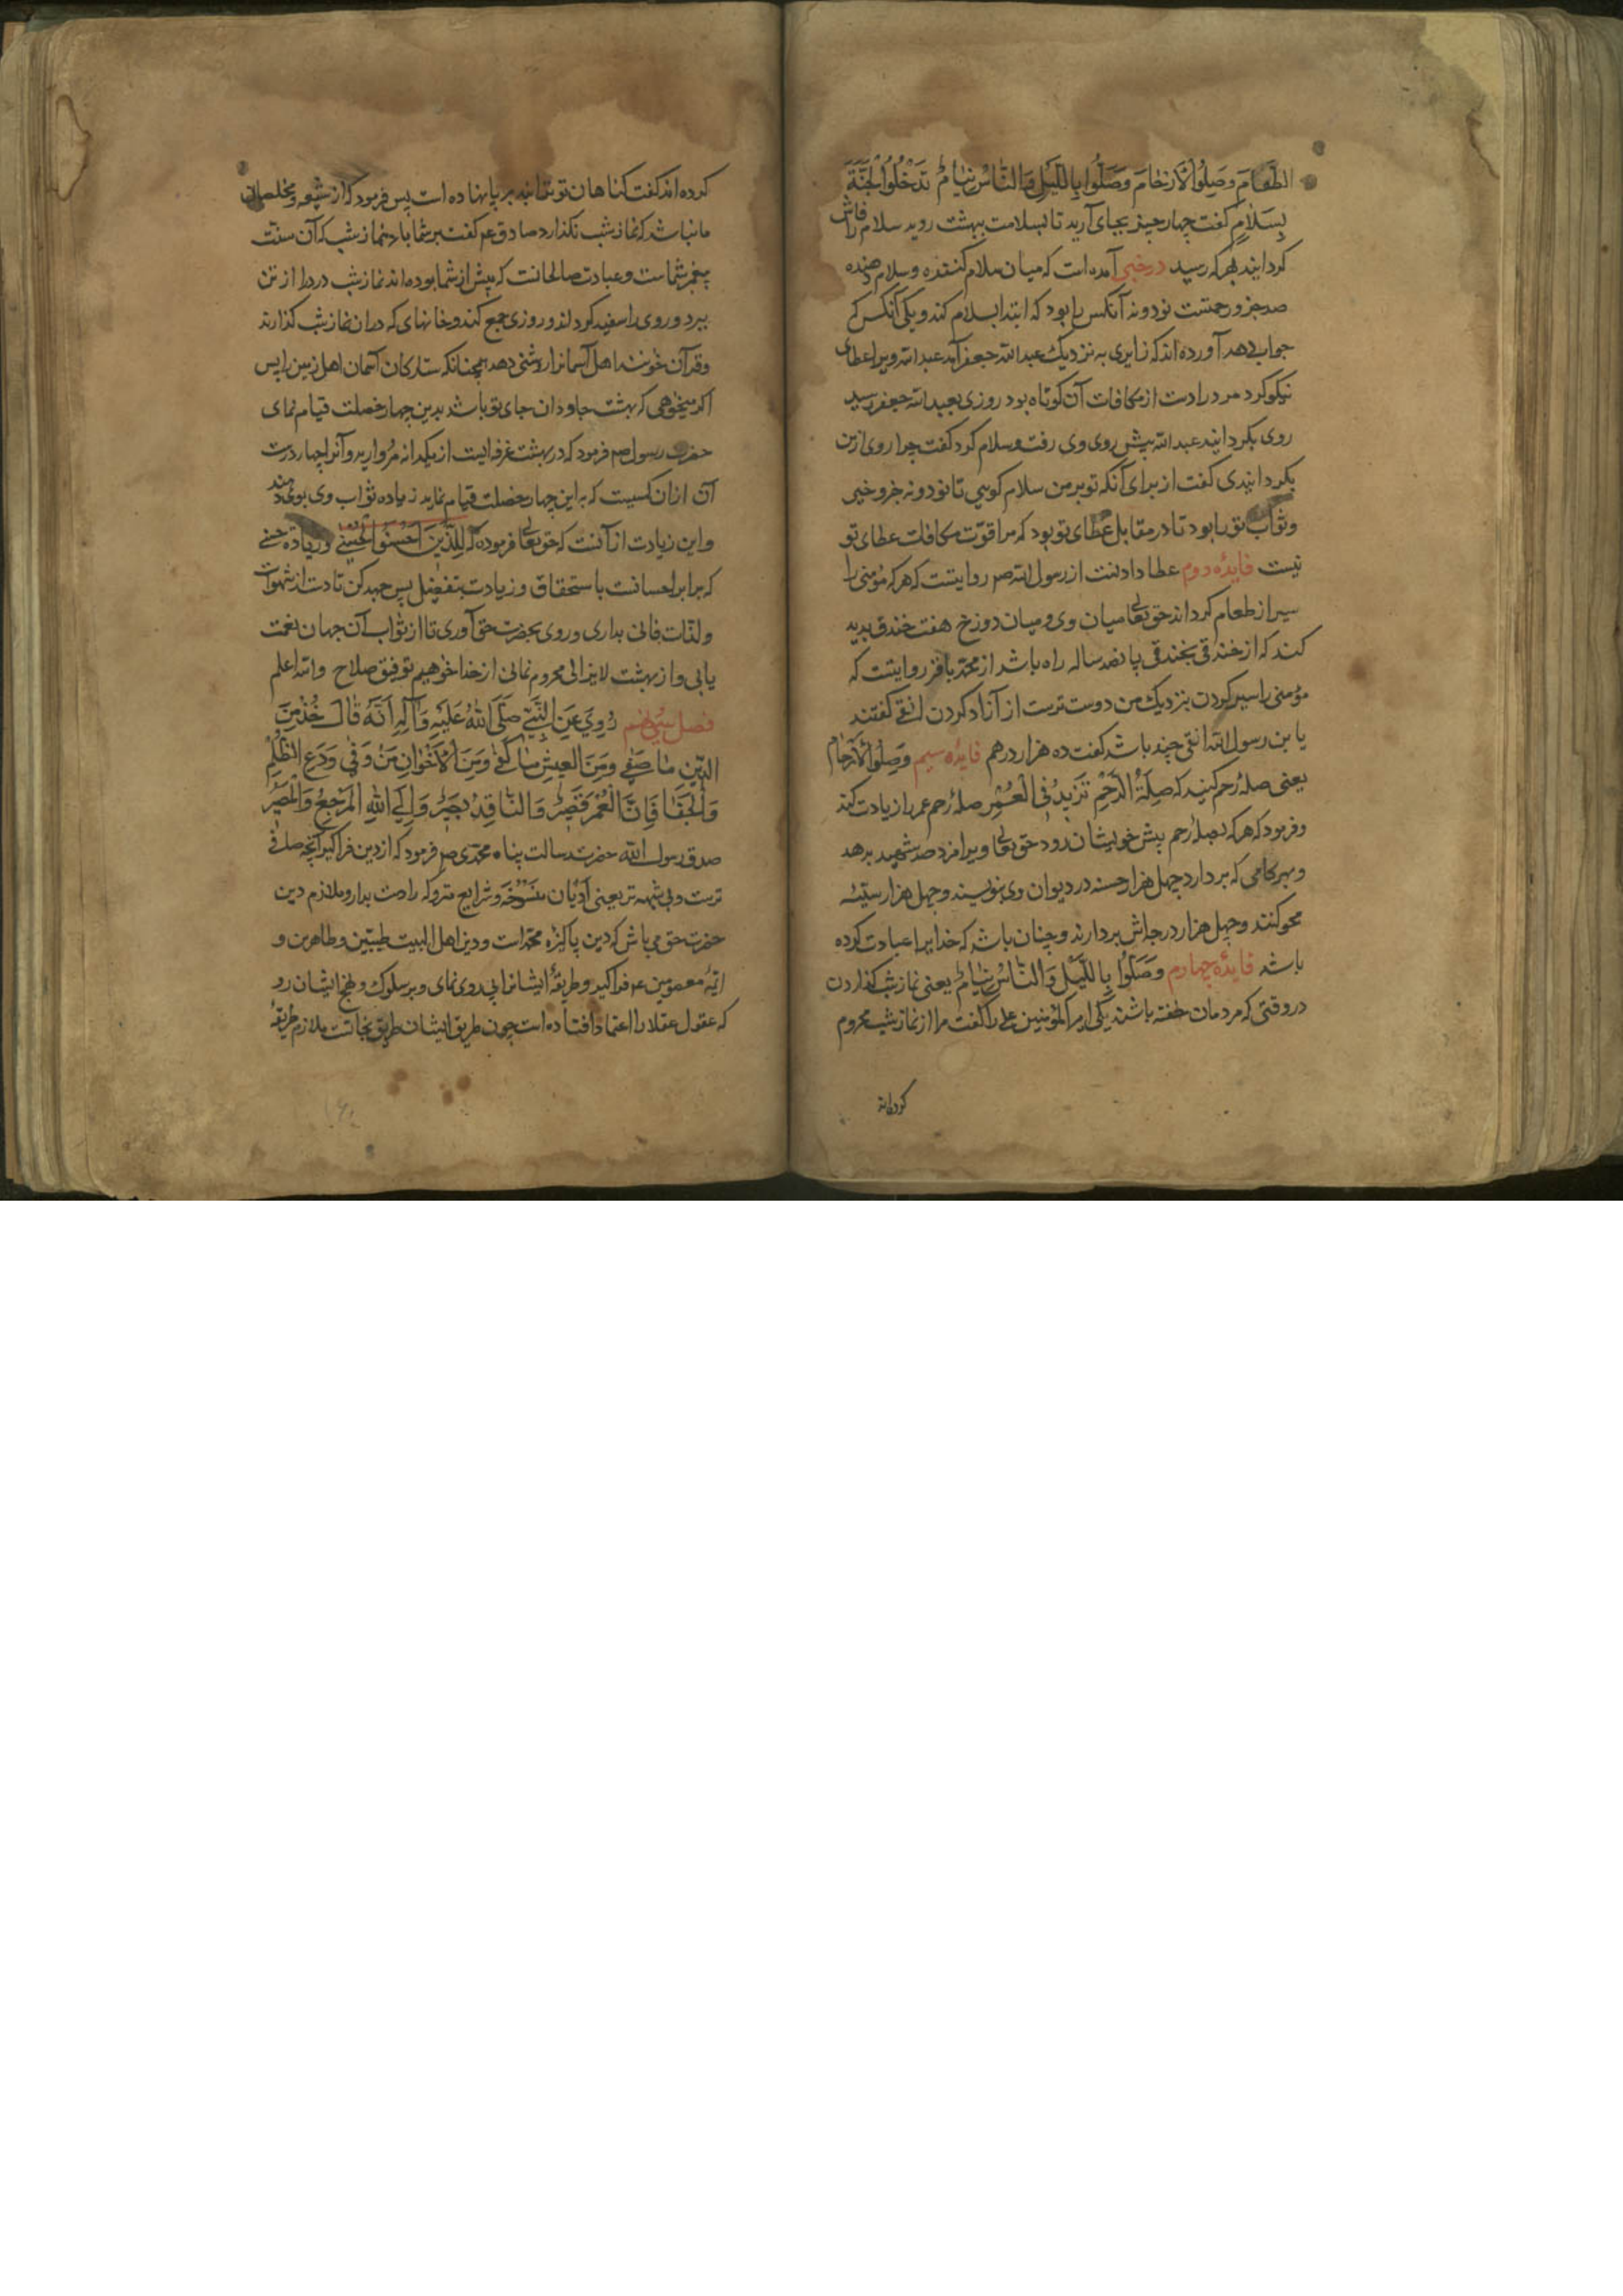 الطَّعَامَ وَصِلُوا الْاَرْحَامَ وَصَلُّوا بِاللَّيْلِ وَالنَّاسُ نِيَامٌ تَدْخُلُوا الْجَنَّةَ
بِسَلَامٍ کفت چهار چیز بجای آرید تا بسلامت ببهشت روید سلام را فاش
کردانید بهرکه رسید در خبر آمده است که میان سلام کننده و سلام دهنده
صد جزو رحمتست نود و نه آنکس را بود که ابتدا بسلام کند و یکی آنکس که
جواب دهد آورده‌اند که زایری به نزدیک عبدالله جعفر آمد عبدالله ویرا عطای
نیکو کرد مرد را دست از مکافات آن کوتاه بود روزی بعبدالله جعفر رسید
روی بکردانید عبدالله پیش روی وی رفت و سلام کرد کفت چرا روی از من
بکردانیدی کفت از برای آنکه تو بر من سلام کویی تا نود و نه جزو خیر
و ثواب تو را بود تا در مقابل عطای تو بود که مرا قوّت مکافات عطای تو
نیست فایدهٔ دوم عطا دادنست از رسول الله صم روایتست که هرکه مؤمنی را
سیر از طعام کرداند حق تعالی میان وی و میان دوزخ هفت خندق پدید
کند که از خندقی بخندقی پانصد ساله راه باشد از محمد باقر روایتست که
مؤمنی را سیر کردن بنزدیک من دوست ترست از آزاد کردن افقی کفتند
یا بن رسول الله افقی چند باشد کفت ده هزار درهم فایدهٔ سیم وَصِلُوا الْاَرْحَامَ
یعنی صلهٔ رحم کنید که صِلَةُ الرَّحِمِ تَزِیدُ فِی الْعُمْرِ صلهٔ رحم عمر را زیادت کند
و فرمود که هرکه بصلهٔ رحم پیش خویشان رود حق تعالی ویرا مزد صد شهید بدهد
و بهر کامی که بردارد چهل هزار حسنه در دیوان وی بنویسند و چهل هزار سیّئه
محو کنند و چهل هزار درجاتش بردارند و چنان باشد که خدایرا عبادت کرده
باشد فایدهٔ چهارم وَصَلُّوا بِاللَّيْلِ وَالنَّاسُ نِيَامٌ یعنی نماز شب کذاردن
در وقتی که مردمان خفته باشند یکی امیرالمؤمنین علی را کفت مرا از نماز شب محروم
کرده‌اند
کرده‌اند کفت کناهان تو بند بر پا نهاده است پس فرمود که از شیعه و مخلصان
ما نباشد که نماز شب نکذارد صادق عم کفت بر شما باد بنماز شب که آن سنت
پیغمبر شماست و عبادت صالحانست که پیش از شما بوده‌اند نماز شب درد را از تن
ببرد و روی را سفید کرداند و روزی جمع کند و خانهای که در آن نماز شب کذارند
و قرآن خوانند اهل آسمانرا روشنی دهد همچنانکه ستارکان آسمان اهل زمین را پس
اکر میخواهی که بهشت جاودان جای تو باشد بدین چهار خصلت قیام نمای
حضرت رسول صم فرمود که در بهشت غرفه ایست از یکدانه مروارید و آنرا چهار درست
آن از ان کسیست که باین چهار خصلت قیام نماید زیاده ثواب وی بوی دهند
و این زیادت از آنست که حق تعالی فرموده که لِلَّذِینَ اَحْسَنُوا الْحُسْنٰی وَزِیَادَة حسنی
که برابر احسانست باستحقاق و زیادت بتفضیل پس جهد کن تا دست از شهوات
و لذّات فانی بداری و روی بحضرت حق آوری تا از ثواب آن جهان نعمت
یابی و از بهشت لایزالی محروم نمانی از خدا خواهیم توفیق صلاح والله اعلم
فصل رُوِیَ عَنِ النَّبِیِّ صَلَّی اللهُ عَلَیْهِ وَآلِهِ اَنَّهُ قَالَ خُذْ مِنَ
الدِّینِ مَا صَفٰی وَمِنَ الْعَیْشِ مَا کَفٰی وَمِنَ الْاَخْوَانِ مَنْ وَفٰی وَدَعِ الظُّلْمَ
وَالْجَفَا فَاِنَّ الْعُمْرَ قَصِیرٌ وَالنَّاقِدُ بَصِیرٌ وَاِلَی اللهِ الْمَرْجَعُ وَالْمَصِیرُ
صدق رسول الله حضرت رسالت پناه محمدی صم فرمود که از دین فرا کیر آنچه صافی
ترست و بی شبهه تر یعنی اَدْیَان مَنْسُوخَه و شرایع متروکه را دست بدار و ملازم دین
حضرت حق می باش که دین پاکیزه محمّداست و دین اهل البیت طیّبین و طاهرین و
ائمّهٔ معصومین عم فرا کیر و طریقهٔ ایشانرا پی روی نمای و بر سلوک و نهج ایشان رو
که عقول عقلا را اعتماد افتاده است چون طریق ایشان طریق نجاتست ملازم طریقهٔ